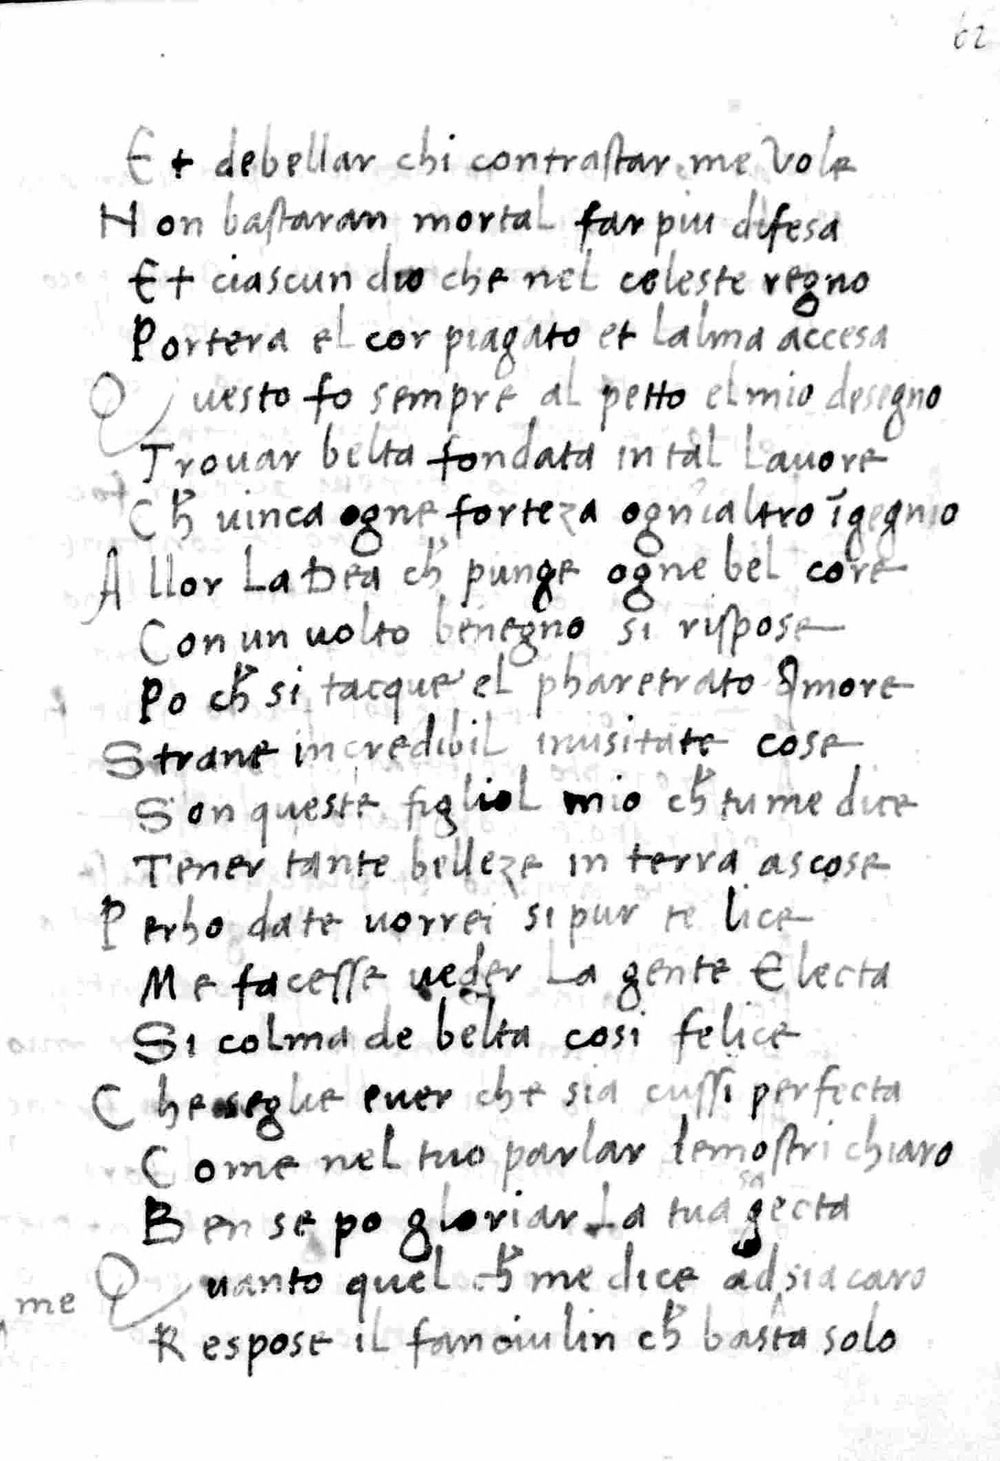 62
Et debellar chi contrastar me vole
Non bastaran mortal far piu difesa
Et ciascun dio che nel celeste regno
Portera el cor piagato et lalma accesa
Questo fo sempre al petto el mio desegno
Trovar belta fondata in tal lauore
Ch̃ uinca ogne forteza ognialtro ĩgegnio
Allor La Dea ch̃ punge ogne bel core
Con un uolto benegno si rispose
Po ch̃ si tacque el pharetrato Amore
Strane incredibil inusitate cose
Son queste figliol mio ch̃ tu me dice
Tener tante belleze in terra ascose
Perho da te uorrei si pur te lice
Me facesse ueder La gente Electa
Si colma de belta cosi felice
Che seglie euer che sia cussi perfecta
Come nel tuo parlar demostri chiaro
Ben se po gloriar La tua sagecta
Quanto quel ch̃ me dice ad sia caro
me
Respose il fanciulin ch̃ basta solo